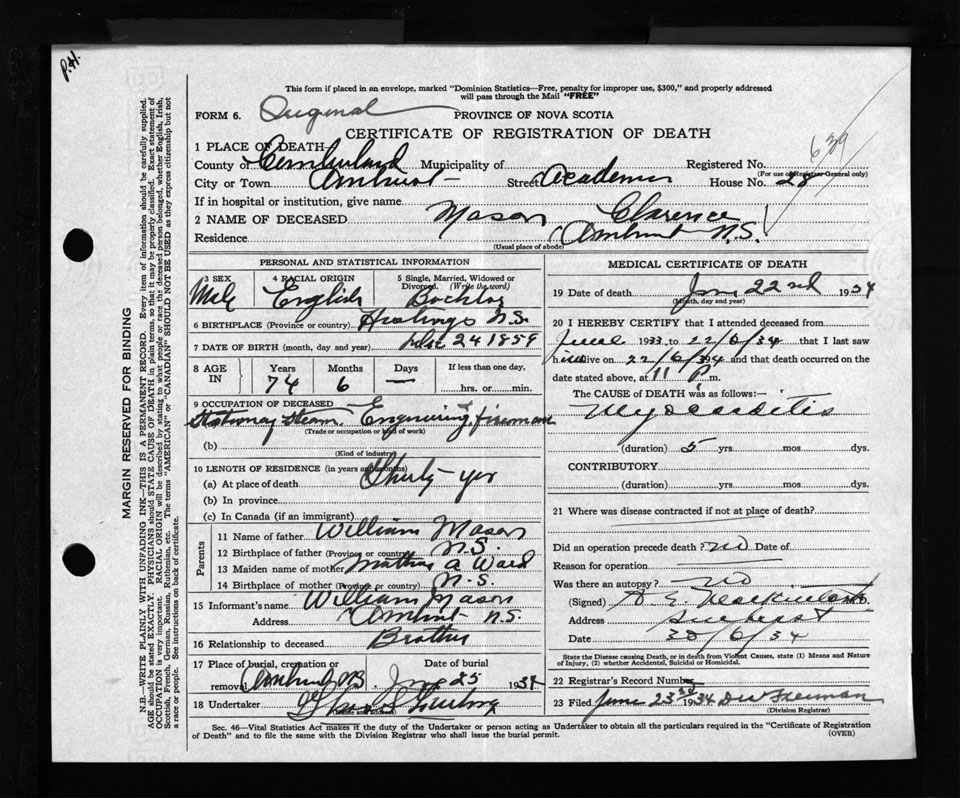 P.H.
This form if placed in an envelope, marked "Dominion Statistics—Free, penalty for improper use, $300," and properly addressed
will pass through the Mail "FREE"
FORM 6. Original PROVINCE OF NOVA SCOTIA
CERTIFICATE OF REGISTRATION OF DEATH
639
1 PLACE OF DEATH
County of Cumberland Municipality of Registered No.
(For use of Registrar General only)
City or Town Amherst Street House No. 28
If in hospital or institution, give name
2 NAME OF DECEASED Mason Clarence
Residence Amherst N.S.
(Usual place of abode)
PERSONAL AND STATISTICAL INFORMATION
3 SEX 4 RACIAL ORIGIN 5 Single, Married, Widowed or
Divorced. (Write the word)
Male English
6 BIRTHPLACE (Province or country) Hastings N.S.
7 DATE OF BIRTH (month, day and year) Dec 24 1859
8 AGE IN Years Months Days If less than one day,
74 6 — hrs. or min.
9 OCCUPATION OF DECEASED
Stationary Steam Engineering, fireman
(Trade or occupation or kind of work)
(b)
(Kind of industry)
10 LENGTH OF RESIDENCE (in years and months)
(a) At place of death Thirty yrs
(b) In province
(c) In Canada (if an immigrant)
Parents
11 Name of father William Mason
12 Birthplace of father (Province or country) N.S.
13 Maiden name of mother A Ward
14 Birthplace of mother (Province or country) N.S.
15 Informant's name William Mason
Address Amherst N.S.
16 Relationship to deceased Brother
17 Place of burial, cremation or Date of burial
removal Amherst June 25 1934
18 Undertaker
MEDICAL CERTIFICATE OF DEATH
19 Date of death June 22nd 1934
(Month, day and year)
20 I HEREBY CERTIFY that I attended deceased from
June 1933 to 22/6/34 that I last saw
him alive on 22/6/34 and that death occurred on the
date stated above, at 11 P m.
The CAUSE OF DEATH was as follows:—
Myocarditis
(duration) 5 yrs. mos. dys.
CONTRIBUTORY
(duration) yrs. mos. dys.
21 Where was disease contracted if not at place of death?
Did an operation precede death? no Date of
Reason for operation
Was there an autopsy? no
(Signed) M.D.
Address Amherst
Date /6/34
State the Disease causing Death, or in death from Violent Causes, state (1) Means and Nature
of Injury, (2) whether Accidental, Suicidal or Homicidal.
22 Registrar's Record Number
23 Filed June 23rd 1934 Freeman
(Division Registrar)
Sec. 46—Vital Statistics Act makes it the duty of the Undertaker or person acting as Undertaker to obtain all the particulars required in the "Certificate of Registration
of Death" and to file the same with the Division Registrar who shall issue the burial permit. (OVER)
MARGIN RESERVED FOR BINDING
N.B.—WRITE PLAINLY WITH UNFADING INK—THIS IS A PERMANENT RECORD. Every item of information should be carefully supplied.
AGE should be stated EXACTLY. PHYSICIANS should STATE CAUSE OF DEATH in plain terms, so that it may be properly classified. Exact statement of
OCCUPATION is very important. RACIAL ORIGIN will be described by stating to what people or race the deceased person belonged, whether English, Irish,
Scottish, French, German, Russian, Ruthenian, etc. The terms "AMERICAN" or "CANADIAN" SHOULD NOT BE USED as they express citizenship but not
a race or people. See instructions on back of certificate.